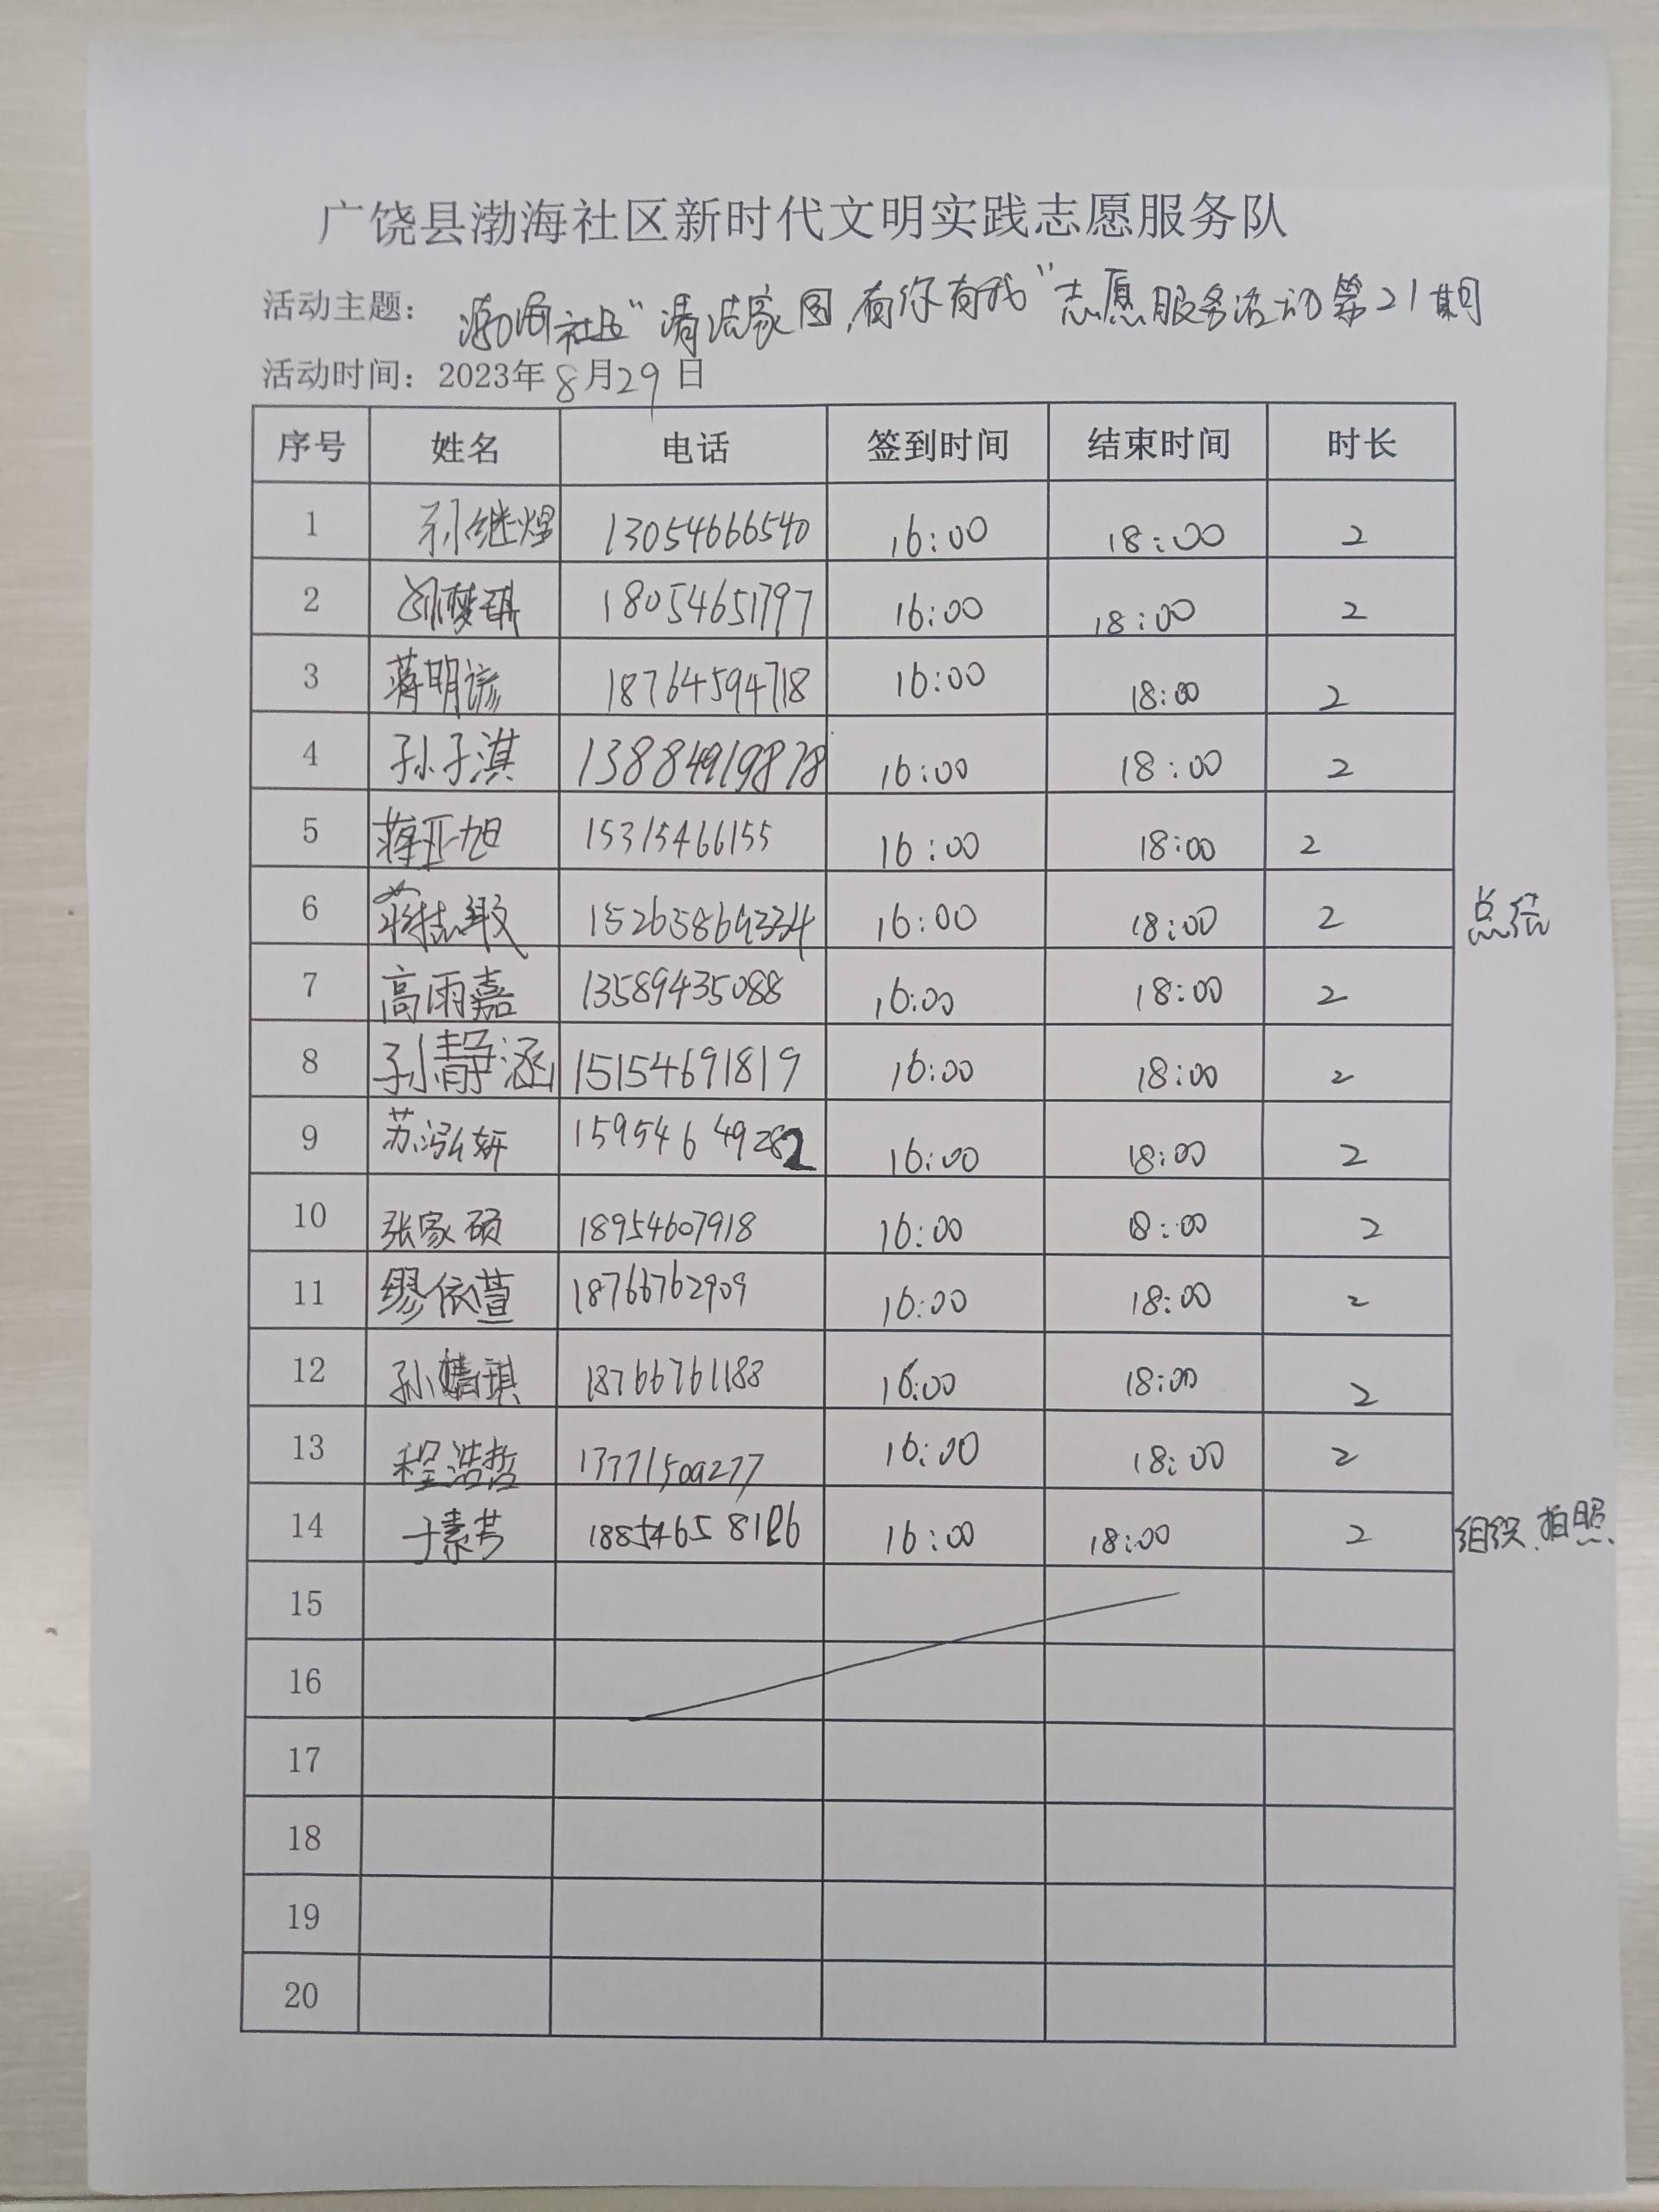 广饶县渤海社区新时代文明实践志愿服务队
活动主题: 渤海社区“清洁家园,有你有我”志愿服务活动第21期
活动时间: 2023年8月29日
序号 姓名 电话 签到时间 结束时间 时长
1 孙继煜 13054666540 16:00 18:00 2
2 18054651797 16:00 18:00 2
3 蒋明谚 18764594718 16:00 18:00 2
4 孙子淇 13884919878 16:00 18:00 2
5 蒋亚旭 15315466155 16:00 18:00 2
6 16:00 18:00 2 总结
7 高雨嘉 13589435088 16:00 18:00 2
8 孙静涵 15154691819 16:00 18:00 2
9 苏泓妍 15954649282 16:00 18:00 2
10 张家硕 18954607918 16:00 18:00 2
11 缪依萱 18766762909 16:00 18:00 2
12 孙婧琪 18766761188 16:00 18:00 2
13 程浩哲 16:00 18:00 2
14 于素芳 16:00 18:00 2 组织、拍照
15
16
17
18
19
20